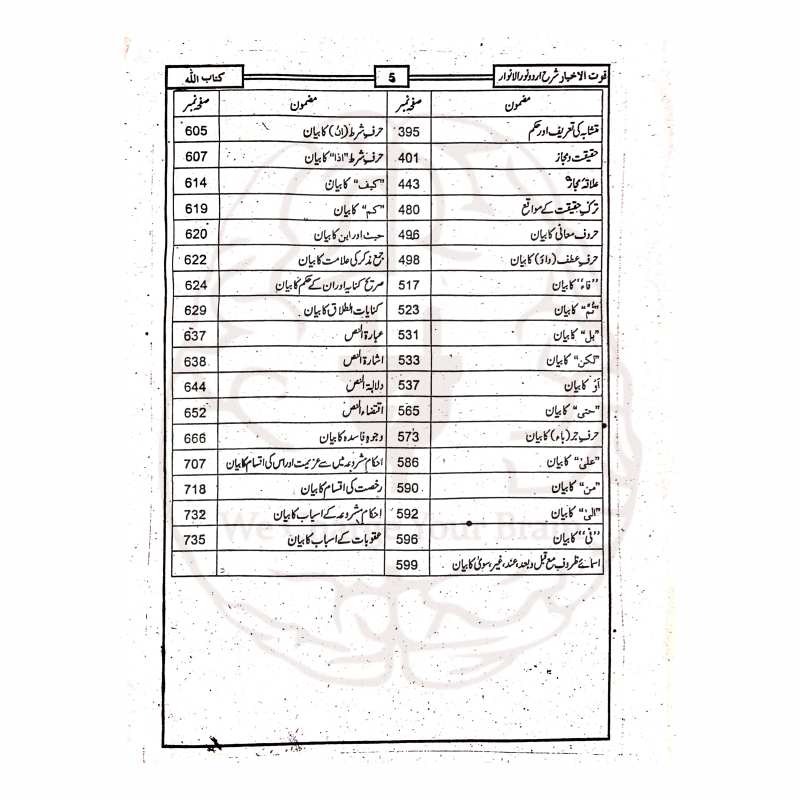 قوت الاخیار شرح اردو نور الانوار 5 کتاب اللہ
مضمون صفحہ نمبر مضمون صفحہ نمبر
متشابہ کی تعریف اور حکم 395 حرف شرط (اِنْ) کا بیان 605
حقیقت ومجاز 401 حرف شرط "اذا" کا بیان 607
علاقۂ مجاز 443 "کیف" کا بیان 614
ترک حقیقت کے مواقع 480 "کم" کا بیان 619
حروف معانی کا بیان 496 حیث اور این کا بیان 620
حرف عطف (واؤ) کا بیان 498 جمع مذکر کی علامت کا بیان 622
"فاء" کا بیان 517 صریح کنایہ اور ان کے حکم کا بیان 624
"ثُمَّ" کا بیان 523 کنایات الطلاق کا بیان 629
"بل" کا بیان 531 عبارۃ النص 637
"لکن" کا بیان 533 اشارۃ النص 638
اَوْ کا بیان 537 دلالۃ النص 644
"حتی" کا بیان 565 اقتضاء النص 652
حرف جر (باء) کا بیان 573 وجوہِ فاسدہ کا بیان 666
"علیٰ" کا بیان 586 احکام مشروعہ میں سے عزیمت اور اس کی اقسام کا بیان 707
"من" کا بیان 590 رخصت کی اقسام کا بیان 718
"الیٰ" کا بیان 592 احکام مشروعہ کے اسباب کا بیان 732
"فی" کا بیان 596 عقوبات کے اسباب کا بیان 735
اسمائے ظروف مع قبل وبعد، عند، غیر، سویٰ کا بیان 599